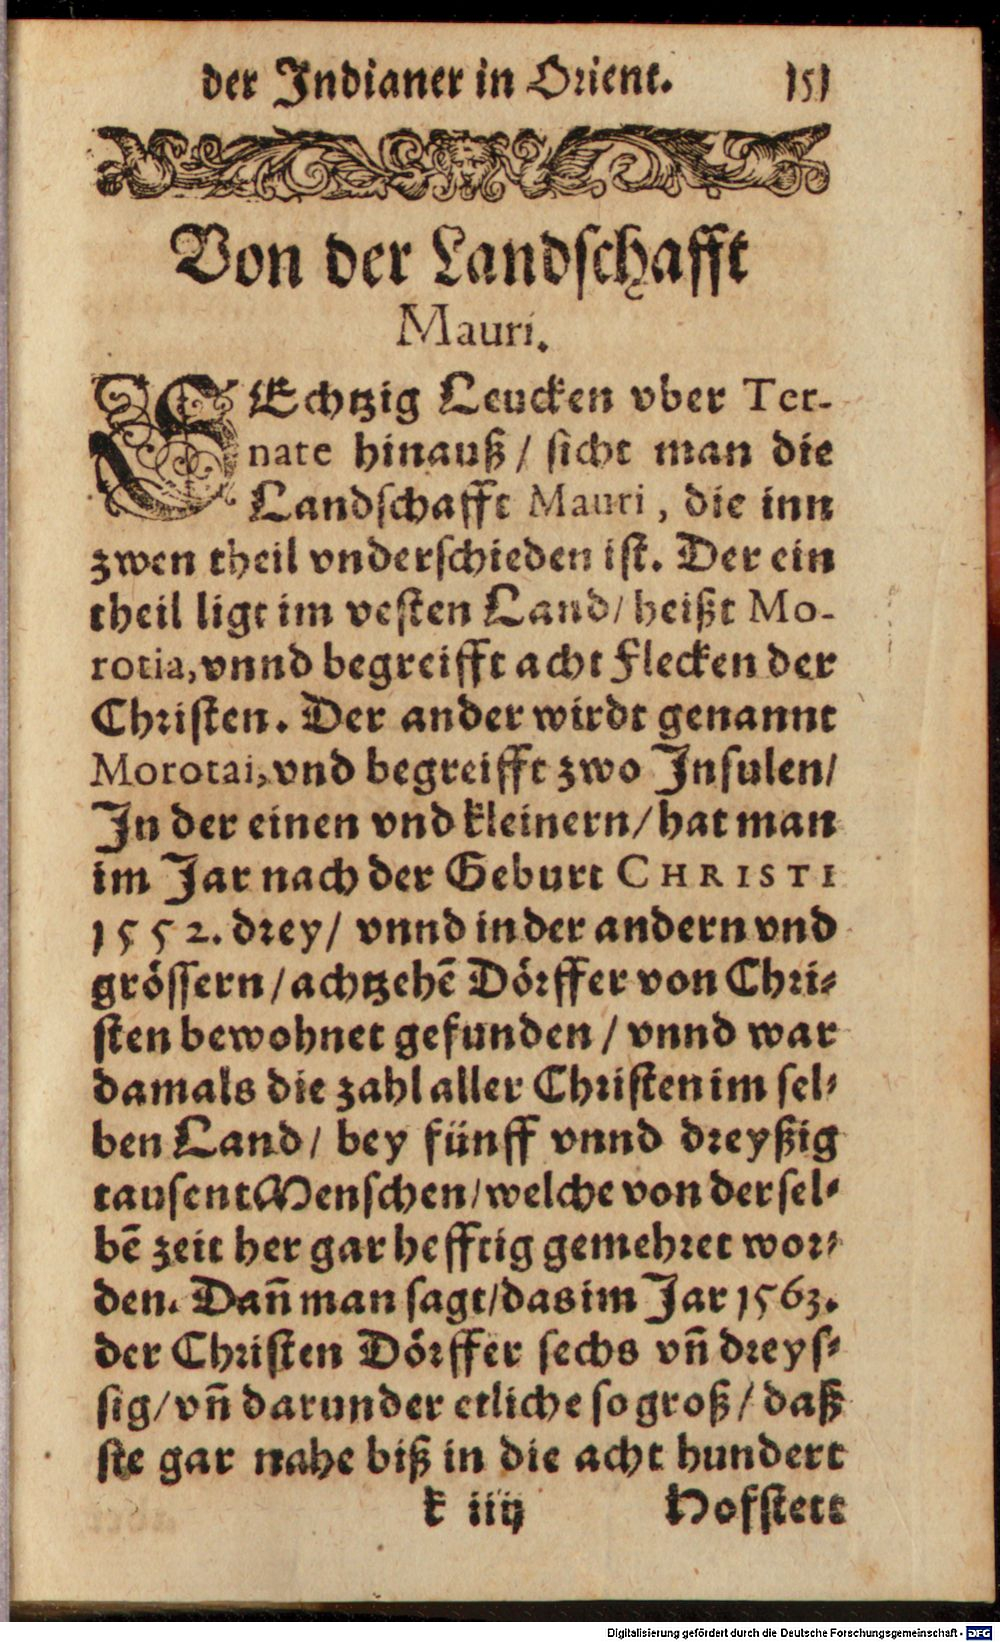 der Indianer in Orient. 151
Von der Landschafft
Mauri.
SEchtzig Leucken vber Ter-
nate hinauß / sicht man die
Landschafft Mauri, die inn
zwen theil vnderschieden ist. Der ein
theil ligt im vesten Land / heißt Mo-
rotia, vnnd begreifft acht Flecken der
Christen. Der ander wirdt genannt
Morotai, vnd begreifft zwo Insulen /
In der einen vnd kleinern / hat man
im Jar nach der Geburt CHRISTI
1552. drey / vnnd in der andern vnd
grössern / achtzehẽ Dörffer von Chri-
sten bewohnet gefunden / vnnd war
damals die zahl aller Christen im sel-
ben Land / bey fünff vnnd dreyßig
tausent Menschen / welche von dersel-
bẽ zeit her gar hefftig gemehret wor-
den. Dañ man sagt / das im Jar 1563.
der Christen Dörffer sechs vñ dreys-
sig / vñ darunder etliche so groß / daß
sie gar nahe biß in die acht hundert
k iiij Hofstett
Digitalisierung gefördert durch die Deutsche Forschungsgemeinschaft - DFG